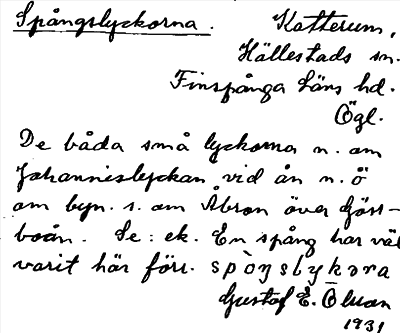 Spångslyckorna.
Katterum,
Hällestads sn.
Finspånga läns hd.
Ögl.
De båda små lyckorna n. om
Johannislyckan vid ån n. ö
om byn. s. om Åbron över
boån. Se: ek. En spång har väl
varit här förr. spɔŋslykɔra
Gustaf E. Olsson
1931